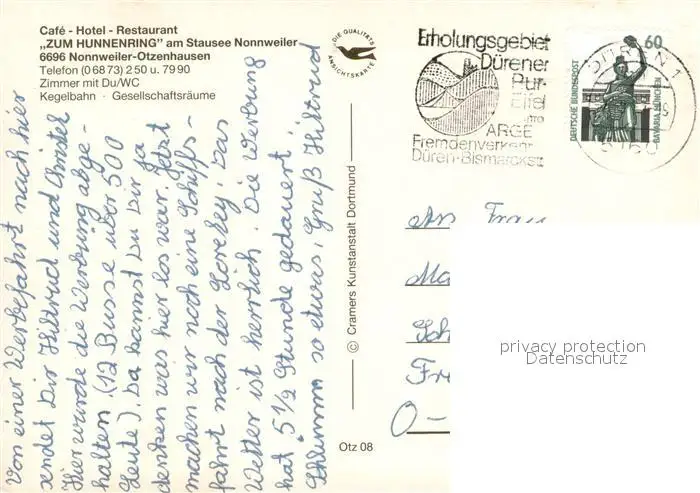 Café - Hotel - Restaurant
„ZUM HUNNENRING" am Stausee Nonnweiler
6696 Nonnweiler-Otzenhausen
Telefon (0 68 73) 2 50 u. 79 90
Zimmer mit Du/WC
Kegelbahn · Gesellschaftsräume
DIE QUALITÄTS
ANSICHTSKARTE
Von einer Werbefahrt nach hier
sendet Dir Hiltrud und Christel
Hier wurde die Werbung abge-
halten (12 Busse über 500
Leute). Da kannst Du Dir ja
denken was hier los war. Jetzt
machen wir noch eine Schiffs-
fahrt nach der Loreley. Das
Wetter ist herrlich. Die Werbung
hat 5 1/2 Stunde gedauert.
Schlimm so etwas, Gruß Hiltrud
© Cramers Kunstanstalt Dortmund
Otz 08
Erholungsgebiet
Dürener
Pur-
Eifel
Info
ARGE
Fremdenverkehr
Düren·Bismarckstr
60
DEUTSCHE BUNDESPOST
BAVARIA MÜNCHEN
An Frau
O-
privacy protection
Datenschutz